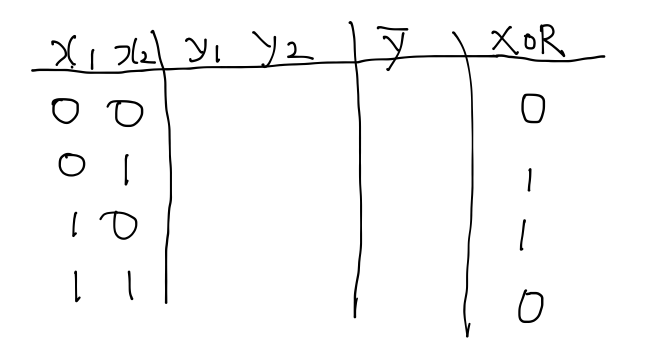 x₁ x₂ y₁ y₂ y̅ XOR
0 0 0
0 1 1
1 0 1
1 1 0